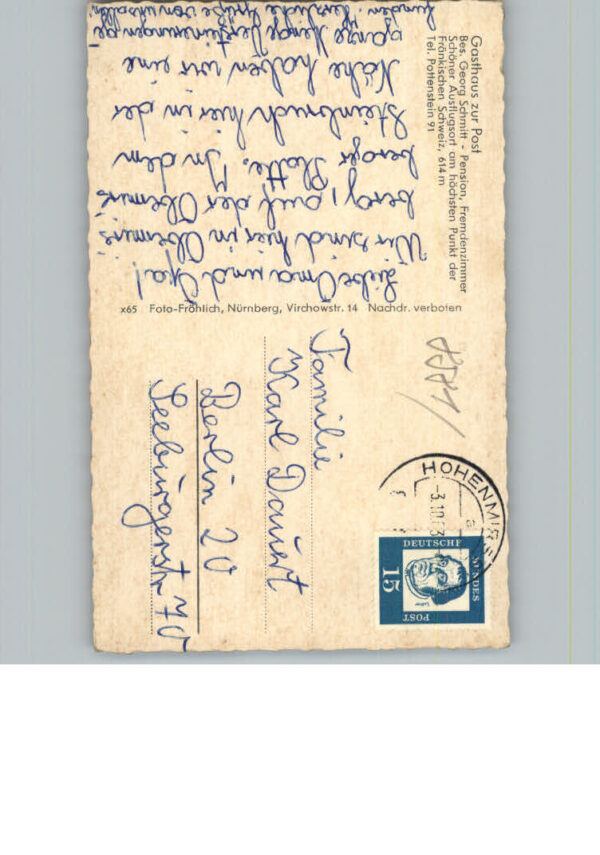 Gasthaus zur Post
Bes. Georg Schmitt - Pension, Fremdenzimmer
Schöner Ausflugsort am höchsten Punkt der
Fränkischen Schweiz, 614 m
Tel. Pottenstein 91
Liebe Oma und Opa!
Wir sind hier in Obermirs=
berg, auf der Obermirs=
berger Platte. In dem
Steinbruch hier in der
Nähe haben wir eine
ganze Menge Versteinerungen ge-
funden. Herzliche Grüße von uns allen.
x65 Foto-Fröhlich, Nürnberg, Virchowstr. 14 Nachdr. verboten
HOHENMIRS
-3.10.63
a
DEUTSCHE
BUNDES
POST
15
Luther
Familie
Karl Dauert
Berlin 20
Seeburgerstr 70